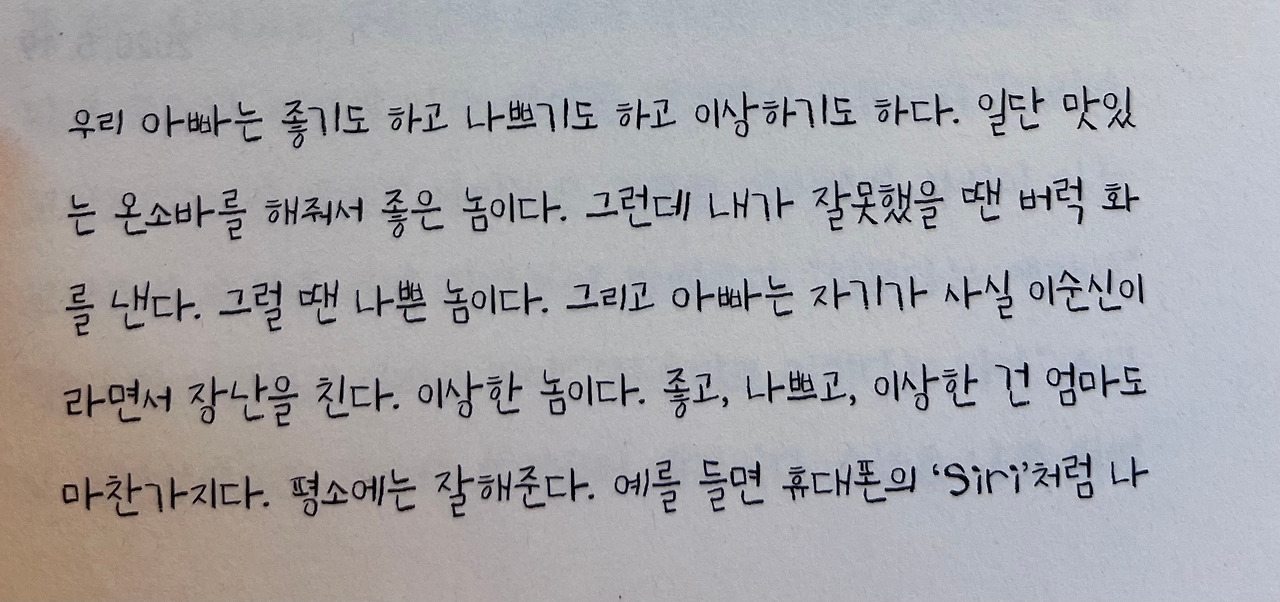 우리 아빠는 좋기도 하고 나쁘기도 하고 이상하기도 하다. 일단 맛있
는 온소바를 해줘서 좋은 놈이다. 그런데 내가 잘못했을 땐 버럭 화
를 낸다. 그럴 땐 나쁜 놈이다. 그리고 아빠는 자기가 사실 이순신이
라면서 장난을 친다. 이상한 놈이다. 좋고, 나쁘고, 이상한 건 엄마도
마찬가지다. 평소에는 잘해준다. 예를 들면 휴대폰의 ‘Siri’처럼 나